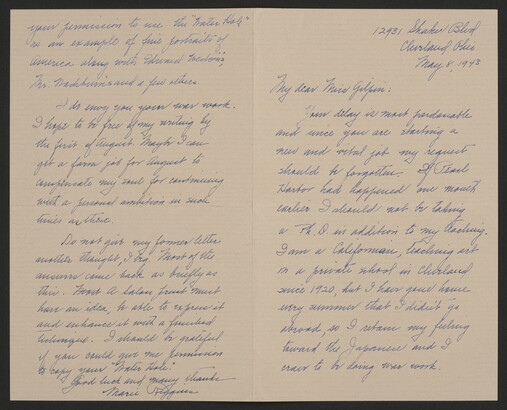 12931 Shaker Blvd
Cleveland Ohio
May 8, 1943
My dear Miss Gilpin:
Your delay is most pardonable
and since you are starting a
new and vital job my request
should be forgotten. If Pearl
Harbor had happened one month
earlier I should not be taking
a Ph. D in addition to my teaching.
I am a Californian, teaching art
in a private school in Cleveland
since 1920, but I have gone home
every summer that I didn't go
abroad, so I retain my feeling
toward the Japanese and I
crave to be doing war work.
your permission to use the "Water Hole"
as an example of fine portraits of
America along with Edward Weston's,
Mr. Washburn's and a few others.
I do envy you your war work.
I hope to be free of my writing by
the first of August. Maybe I can
get a farm job for August to
compensate my soul for continuing
with a personal ambition in such
times as these.
Do not give my former letter
another thought, I beg. Most of the
answers came back as briefly as
this. Most a salon print must
have an idea, be able to express it
and enhance it with a finished
technique. I should be grateful
if you could give me permission
to copy your "Water Hole".
Good luck and many thanks
Marie